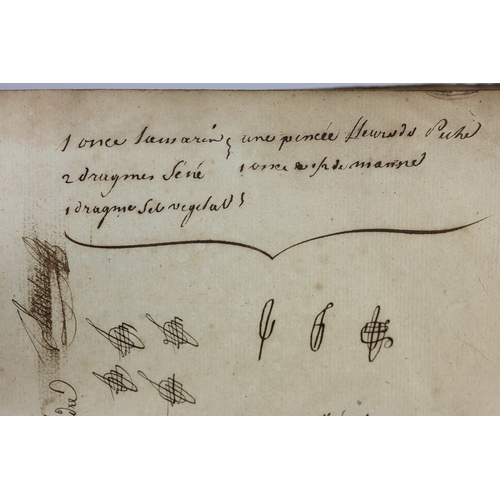 1 once tamarin une pincée fleurs de Peché
2 dragmes séné 1 once de manne
1 dragme Sel vegetal